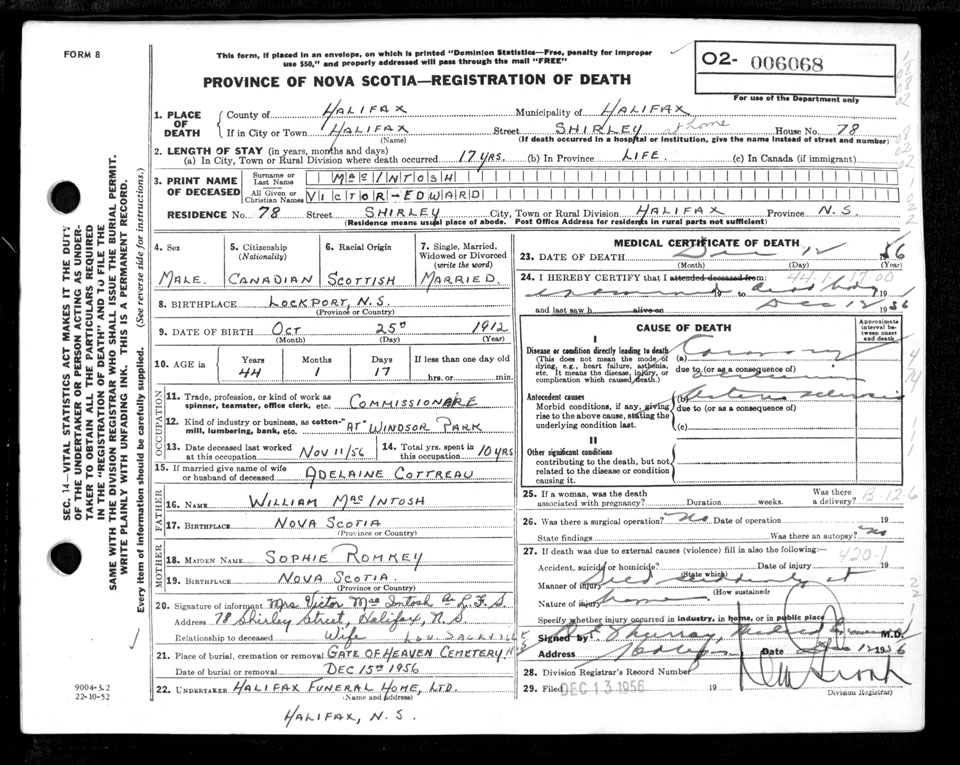 FORM 8
This form, if placed in an envelope, on which is printed "Dominion Statistics—Free, penalty for improper
use $50," and properly addressed will pass through the mail "FREE"
PROVINCE OF NOVA SCOTIA—REGISTRATION OF DEATH
02- 006068
For use of the Department only
SEC. 14—VITAL STATISTICS ACT MAKES IT THE DUTY
OF THE UNDERTAKER OR PERSON ACTING AS UNDER-
TAKER TO OBTAIN ALL THE PARTICULARS REQUIRED
IN THE "REGISTRATION OF DEATH" AND TO FILE THE
SAME WITH THE DIVISION REGISTRAR WHO SHALL ISSUE THE BURIAL PERMIT.
WRITE PLAINLY WITH UNFADING INK. THIS IS A PERMANENT RECORD.
Every item of information should be carefully supplied. (See reverse side for instructions.)
1. PLACE OF DEATH
County of HALIFAX Municipality of HALIFAX
If in City or Town HALIFAX Street SHIRLEY at home House No. 78
(Name) (If death occurred in a hospital or institution, give the name instead of street and number)
2. LENGTH OF STAY (in years, months and days)
(a) In City, Town or Rural Division where death occurred 17 YRS. (b) In Province LIFE. (c) In Canada (if immigrant)
3. PRINT NAME OF DECEASED
Surname or Last Name MACINTOSH
All Given or Christian Names VICTOR-EDWARD
RESIDENCE No. 78 Street SHIRLEY City, Town or Rural Division HALIFAX Province N.S.
(Residence means usual place of abode. Post Office Address for residents in rural parts not sufficient)
4. Sex 5. Citizenship (Nationality) 6. Racial Origin 7. Single, Married, Widowed or Divorced (write the word)
MALE. CANADIAN SCOTTISH MARRIED.
8. BIRTHPLACE LOCKPORT, N.S.
(Province or Country)
9. DATE OF BIRTH OCT 25TH 1912
(Month) (Day) (Year)
10. AGE in Years Months Days If less than one day old
44 1 17 hrs. or min.
OCCUPATION
11. Trade, profession, or kind of work as
spinner, teamster, office clerk, etc. COMMISSIONRE
12. Kind of industry or business, as cotton-
mill, lumbering, bank, etc. "AT WINDSOR PARK
13. Date deceased last worked at this occupation NOV 11/56 14. Total yrs. spent in this occupation 10 YRS
15. If married give name of wife
or husband of deceased ADELAINE COTTREAU
FATHER
16. NAME WILLIAM MACINTOSH
17. BIRTHPLACE NOVA SCOTIA
(Province or Country)
MOTHER
18. MAIDEN NAME SOPHIE ROMKEY
19. BIRTHPLACE NOVA SCOTIA.
(Province or Country)
20. Signature of informant Mrs Victor MacIntosh
Address 78 Shirley Street, Halifax, N.S.
Relationship to deceased Wife LOW. SACKVILLE N.S
21. Place of burial, cremation or removal GATE OF HEAVEN CEMETERY
Date of burial or removal DEC 15TH 1956
22. UNDERTAKER HALIFAX FUNERAL HOME, LTD.
(Name and Address)
HALIFAX, N.S.
9004-3.2
22-10-52
MEDICAL CERTIFICATE OF DEATH
23. DATE OF DEATH Dec 12 56
(Month) (Day) (Year)
24. I HEREBY CERTIFY that I attended deceased from: 44-1-17-00
examined to dead body 19
and last saw h alive on Dec 12 1956
CAUSE OF DEATH
Approximate interval between onset and death
I
Disease or condition directly leading to death (a) Coronary
(This does not mean the mode of dying, e.g., heart failure, asthenia, etc. It means the disease, injury, or complication which caused death.)
due to (or as a consequence of)
occlusion
Antecedent causes (b) Arteriosclerosis
Morbid conditions, if any, giving rise to the above cause, stating the underlying condition last.
due to (or as a consequence of)
(c)
II
Other significant conditions
contributing to the death, but not related to the disease or condition causing it.
25. If a woman, was the death associated with pregnancy? Duration weeks. Was there a delivery? B-12-6
26. Was there a surgical operation? No Date of operation 19
State findings Was there an autopsy? No
27. If death was due to external causes (violence) fill in also the following: 420.1
Accident, suicide or homicide? Date of injury 19
(State which)
Manner of injury Died suddenly at
(How sustained)
Nature of injury home
Specify whether injury occurred in industry, in home, or in public place
Signed by Murray, Medical Examiner M.D.
Address Halifax Date Dec 12 1956
28. Division Registrar's Record Number
29. Filed DEC 13 1956 19
Division Registrar